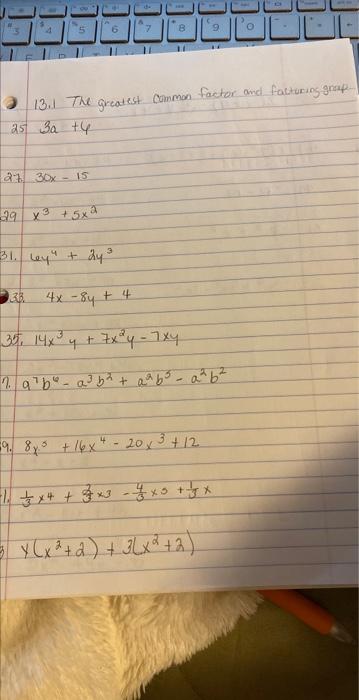 # 3 $ 4 % 5 ^ 6 & 7 * 8 ( 9 ) 0
13.1 The greatest common factor and factoring group
25 3a + 6
27. 30x - 15
29 x³ + 5x²
31. 6y⁴ + 2y³
33. 4x - 8y + 4
35. 14x³y + 7x²y - 7xy
7. a⁷b⁶ - a³b² + a²b⁵ - a²b²
9. 8x⁵ + 16x⁴ - 20x³ + 12
1. 1/3 x4 + 2/3 x3 - 4/3 x5 + 1/3 x
3 y(x²+2) + 3(x²+2)